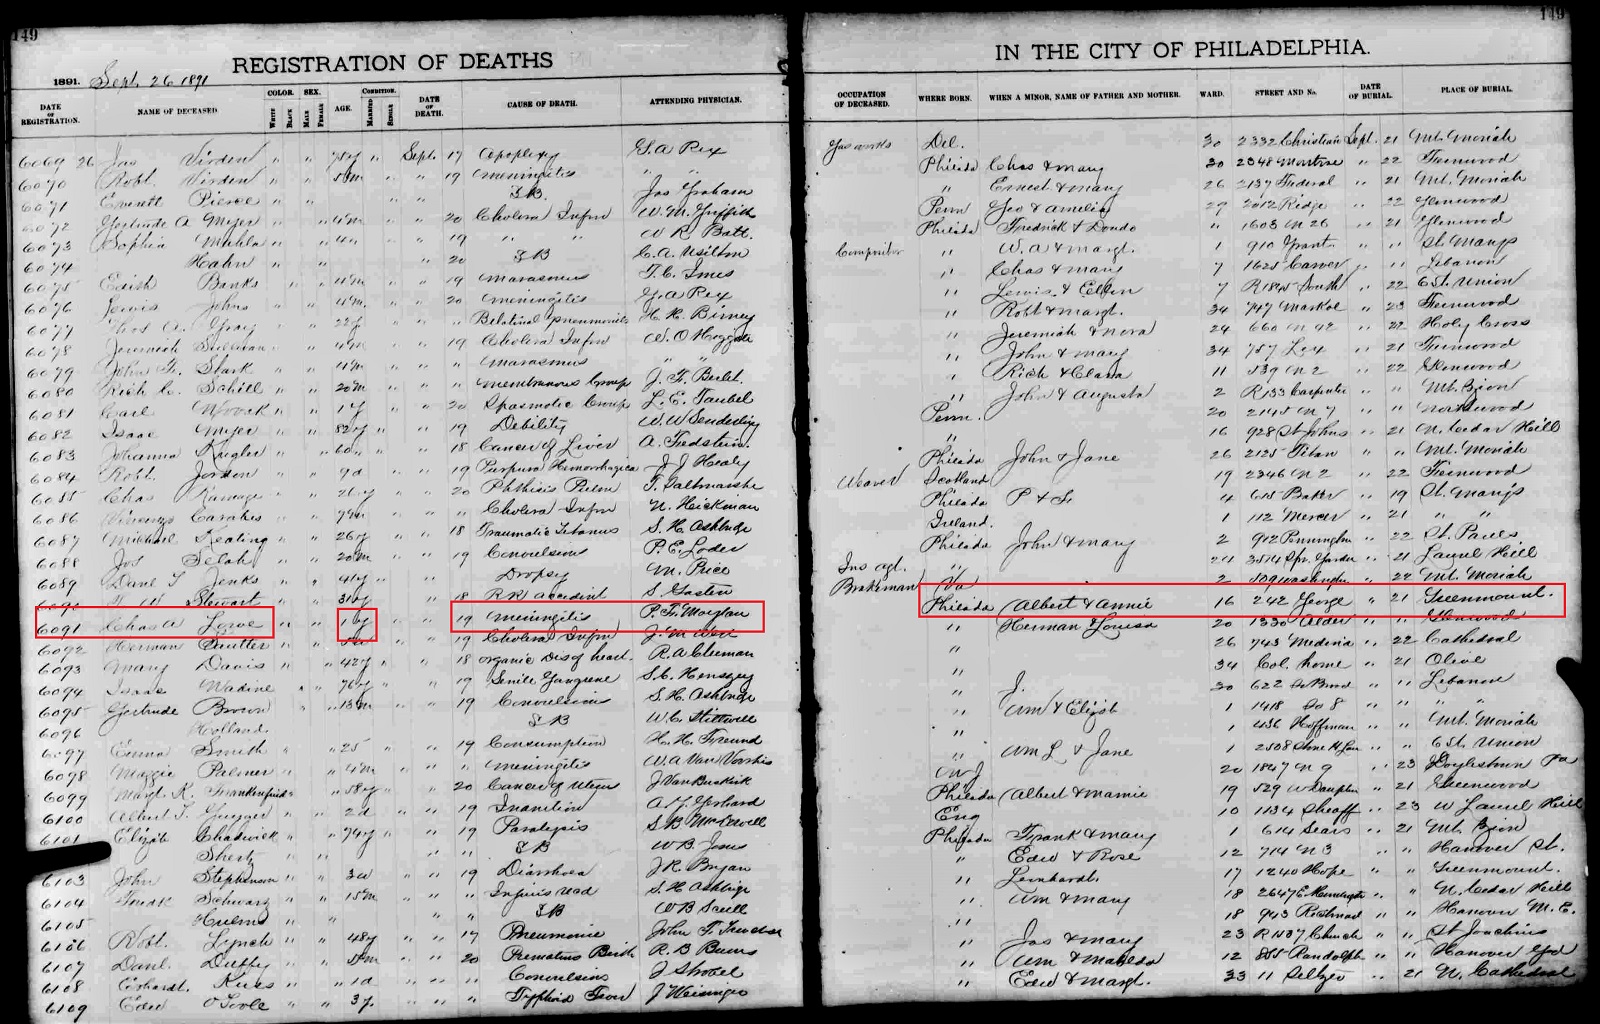 149
149
REGISTRATION OF DEATHS
IN THE CITY OF PHILADELPHIA.
1891. Sept. 26 1891
DATE OF REGISTRATION. NAME OF DECEASED. COLOR. White Black SEX. Male Female AGE. Condition. Married Single DATE OF DEATH. CAUSE OF DEATH. ATTENDING PHYSICIAN. OCCUPATION OF DECEASED. WHERE BORN. WHEN A MINOR, NAME OF FATHER AND MOTHER. WARD. STREET AND No. DATE OF BURIAL. PLACE OF BURIAL.
6069 26 Jas Virden " " " Sept. 17 Apoplexy G. A Rex Gas works Del. 30 2332 Christian Sept. 21 Mt. Moriah
6070 Robt. Virden " " " " 19 Meningitis " " Philada Chas & Mary 30 2348 Montrose " 22 Fernwood
6071 Everett Pierce " " " " S B Jas Graham " Ernest & Mary 26 2137 Federal " 21 Mt. Moriah
6072 Gertrude A Myer " " " " 20 Cholera Infm W. M. Griffith Penn Geo & Amelia 29 2012 Ridge " 22 Glenwood
6073 Sophia " " " " 19 " " W R Batt. Philada Fredrick & " 1603 N 26 " 21 Glenwood
6074 Hahn " " " 20 S B C. A. " W. A & Margt. 1 910 Grant " " St. Marys
6075 Edith Banks " " " " 19 Marasmus T. C. Imes Compositor " Chas & Mary 7 1625 Carver " " Lebanon
6076 Lewis Johns " " " " 20 Meningitis G. A Rex " Lewis & Ellen 7 R 1845 South " 22 Est. Union
6077 Thos A. Gray " " 22y " " " Pneumonitis H. R. Birney " Robt & Margt. 34 747 Markoe " 23 Fernwood
6078 Jeremiah Sullivan " " " " 19 Cholera Infm W. O Hoggate " Jeremiah & Nora 24 660 N 42 " 22 Holy Cross
6079 John F. Stark " " 11m " " " Marasmus " " " John & Mary 34 757 Lex " 21 Fernwood
6080 Rich C. Schill " " 20m " " " Membranous Croup J. F. Berlet. " Rich & Clara 11 539 N 2 " 22 Glenwood
6081 Carl " " 1y " " 20 Spasmotic Croup L. E. Taubel " John & Augusta 2 R 133 Carpenter " " Mt. Zion
6082 Isaac Myer " " 82y " " 19 Debility W. W Senderling Penn. 20 2145 N 7 " " Northwood
6083 Johanna Kugler " " 60 " " 18 Cancer of Liver A. Fredstein. " 16 928 St Johns " 21 N. Cedar Hill
6084 Robt. Jordon " " 9d " " 19 Purpura Hemorrhagica J J Healy Philada John & Jane 26 2125 Titan " " Mt. Moriah
6085 Chas Ramage " " 26y " " 20 Phthisis Pulm Weaver Scotland 19 2346 N 2 " 22 Fernwood
6086 " " 7m " " " Cholera Infm N. Hickman Philada P & 4 615 Baker " 19 St. Marys
6087 Michael Keating " " 26y " " 18 Traumatic Tetanus S. H. Ashbridge Ireland. 1 112 Mercer " 21 " "
6088 Jos Selah " " 20m " " 19 Convulsions P. E. Loder Philada John & Mary 2 912 Pennington " 22 St. Pauls
6089 Danl T Jenks " " 41y " " Dropsy M. Price Ins agt. " 24 3514 Spr. Garden " 21 Laurel Hill
6090 Stewart " " 31y " " 18 R R Accident S. Gasten Brakeman Va 2 509 Washington " 22 Mt. Moriah
6091 Chas A Lowe " " 1y " " 19 Meningitis P. F. Moylan Philada Albert & Annie 16 242 George " 21 Greenmount.
6092 Herman Sautter " " " " 19 Cholera Infm J. M West " Herman & Louisa 20 1330 Alder " " Glenwood
6093 Mary Davis " " 42y " " 18 Organic Dis of heart. R. A Cleeman " 26 743 Medina " 22 Cathedral
6094 Isaac Wadine " " 76y " " 19 Senile Gangrene S. C. Henszey 34 Col. home " 21 Olive
6095 Gertrude Brown " " 13m " " 19 Convulsions S. H. Ashbridge " 30 622 So Broad " " Lebanon
6096 Holland S B W. C. Stillwell " Wm & Elizab 1 1418 So 8 " " " "
6097 Emma Smith " " 25 " " 19 Consumption H. H. Freund " 1 436 Hoffman " " Mt. Moriah
6098 Mazzie Palmer " " 4m " " " Meningitis W. A Van " Wm L & Jane 1 2508 " " Est. Union
6099 Margt. K. " " 58y " " 20 Cancer of Uterus J Van Buskirk N J 20 1847 N 9 " 23 Doylestown Pa
6100 Albert T. " " 2d " " 19 Inanition A. F. Gerhard Philada Albert & Mamie 19 529 W Dauphin " 21 Greenwood
6101 Elizab Chadwick " " 74y " " 19 Paralysis S. B. McDowell Eng 10 1134 Sheaff " 23 W Laurel Hill
Shertz " " " " S B W B Jones Philada Frank & Mary 1 614 Sears " 21 Mt. Zion
6103 John Stephenson " " " " 19 Diarrhoea J. R. Bryan " Edw & Rose 12 714 N 3 " " Hanover St.
6104 Fredk Schwarz " " 15m S. H. Ashbridge " Leonhardt. 17 1240 Hope " " Greenmount.
6105 Hulms " " " " S B W B Scull " Wm & Mary 18 2647 E " " N. Cedar Hill
6106 Robt. Lynch " " 48y " " 17 Pneumonia John F. " 18 943 Richmond " " Hanover M. E.
6107 Danl. Duffy " " " " 20 Premature Birth R. B Burns " Jas & Mary 23 R 1537 Church " " St Joachims
6108 Erhardt. Kues " " 1d " " " Convulsions J Strobel " Wm & Matilda 12 855 Randolph " " Hanover Gd
6109 Edw O'Toole " " 3y. " " " Typhoid Fever J Weisinger " Edw & Margt. 33 11 Seltzer " 21 N. Cathedral